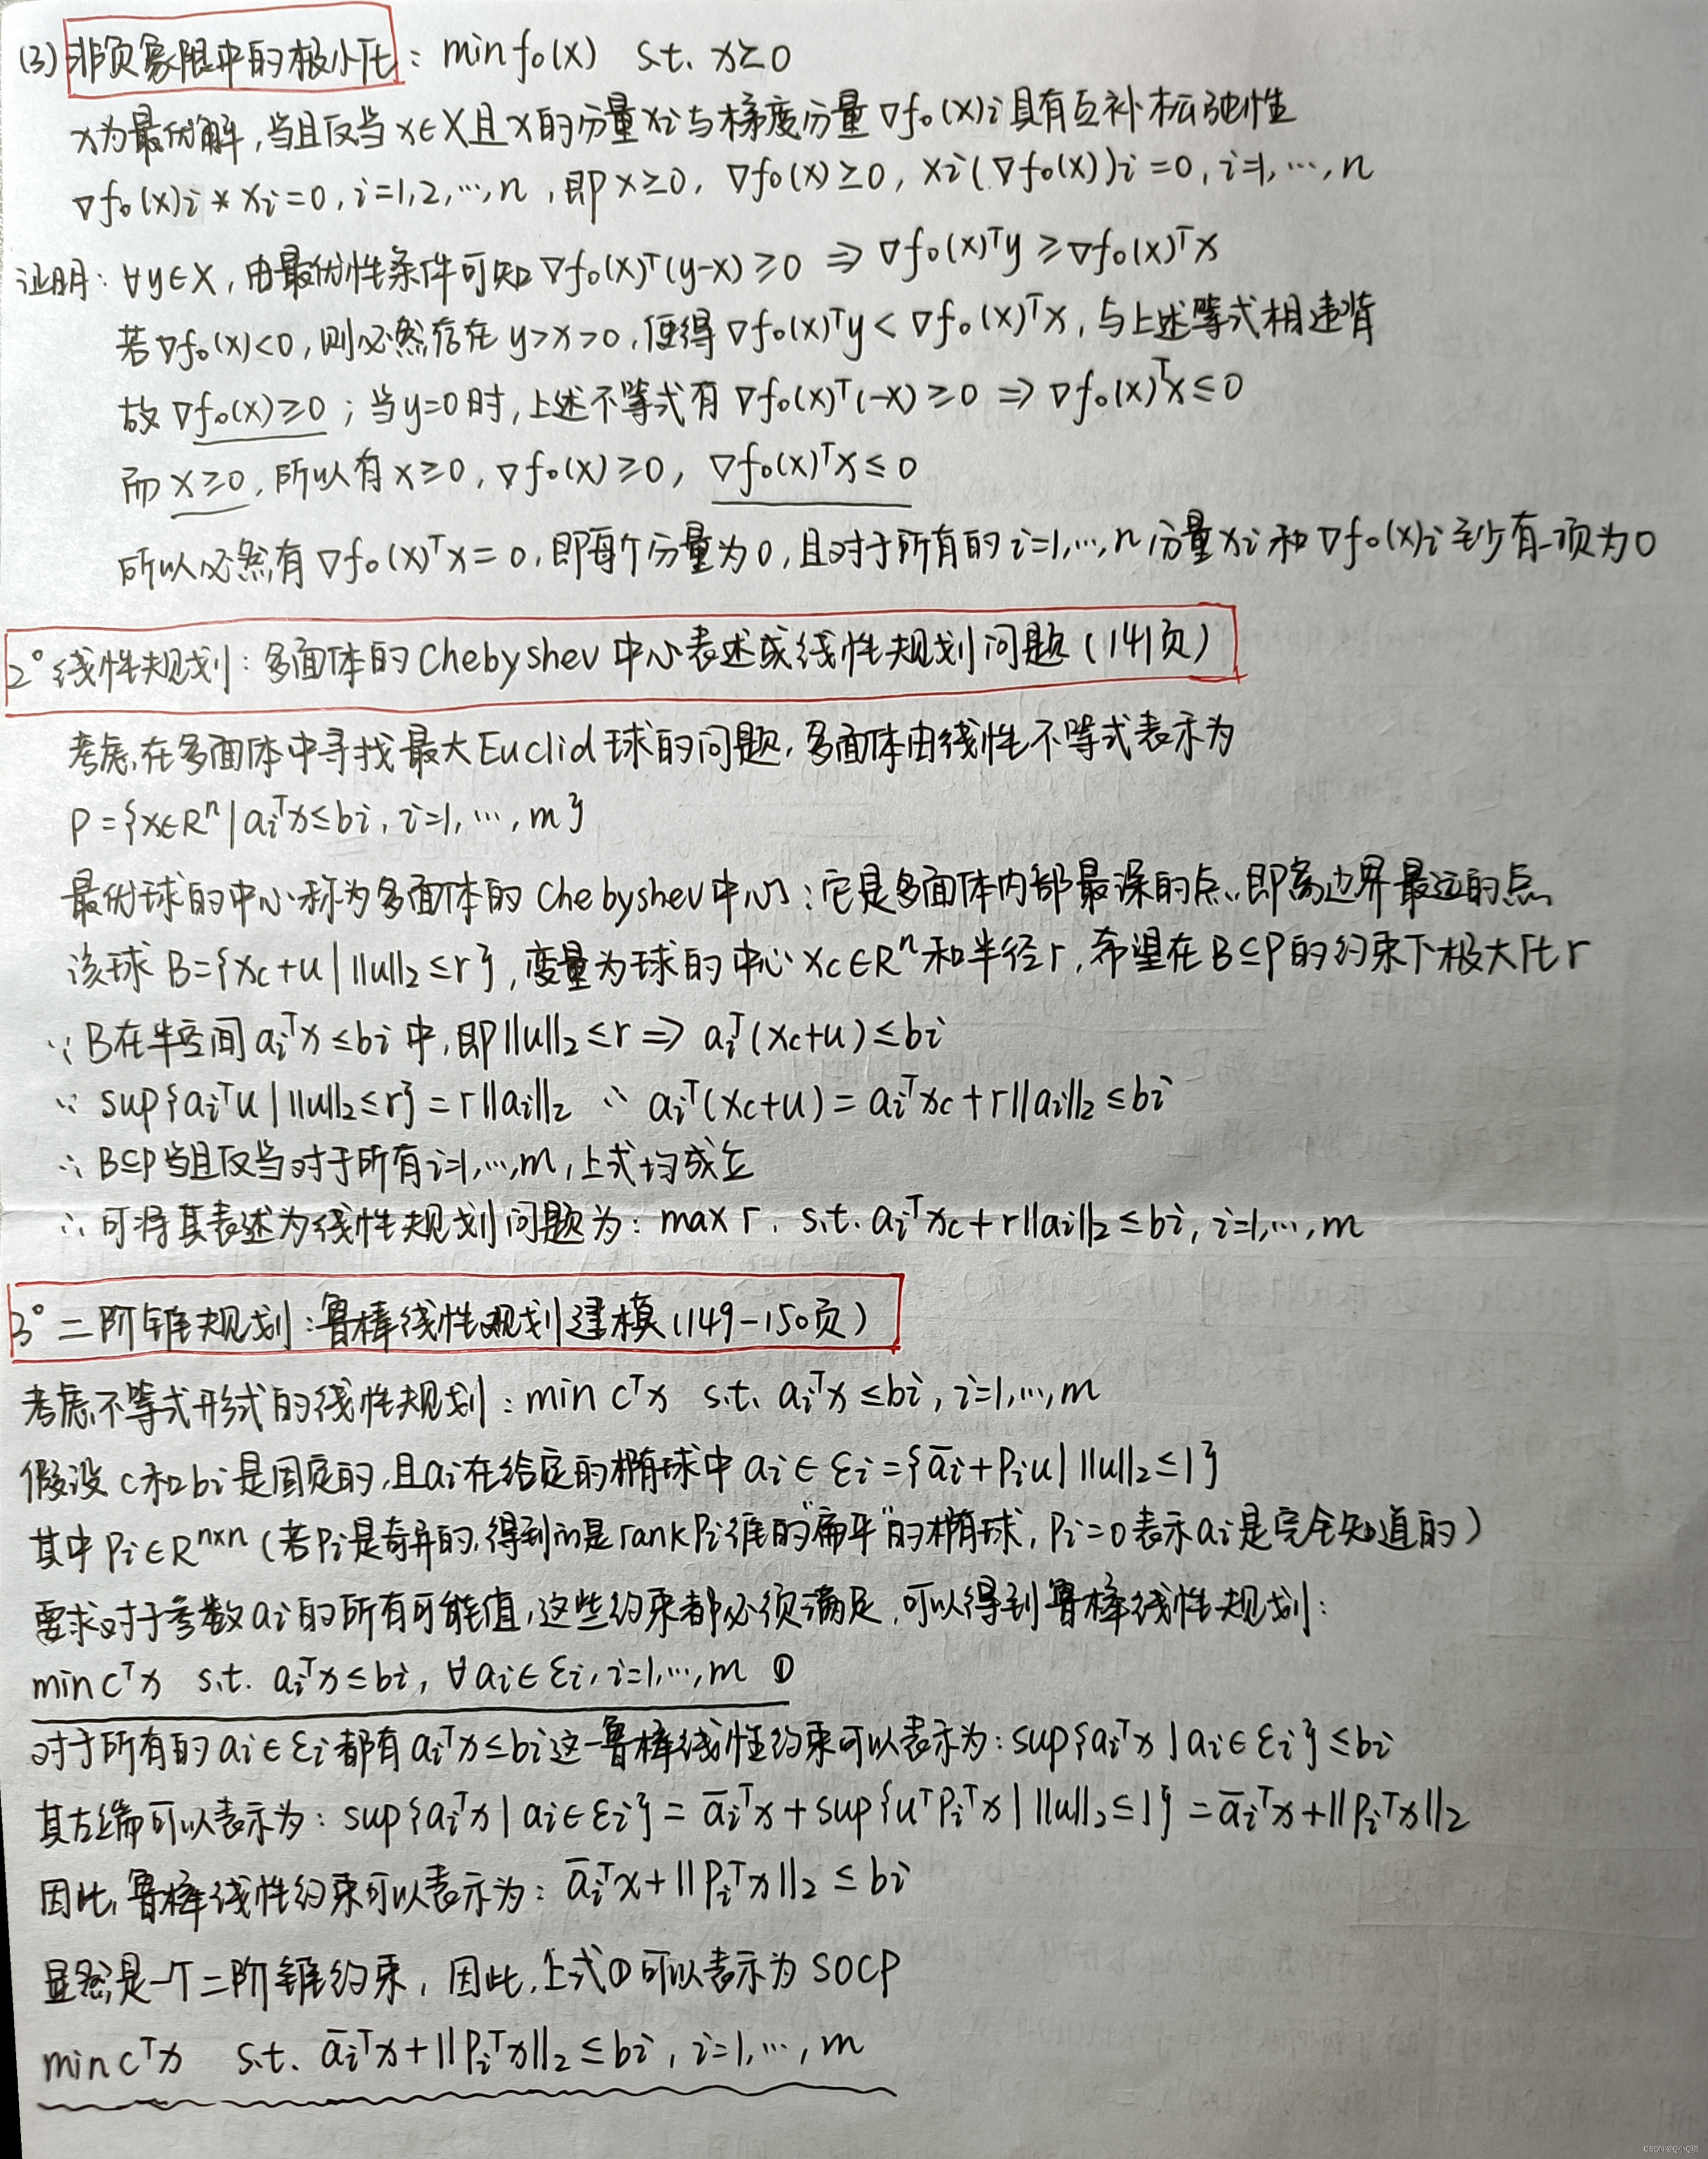 (3) 非负象限中的极小化: min f₀(x) s.t. x≥0
x为最优解,当且仅当x∈X且x的分量xi与梯度分量∇f₀(x)i具有互补松弛性
∇f₀(x)i * xi=0, i=1,2,…,n, 即x≥0, ∇f₀(x)≥0, xi(∇f₀(x))i=0, i=1,…,n
证明: ∀y∈X, 由最优性条件可知∇f₀(x)ᵀ(y-x)≥0 ⇒ ∇f₀(x)ᵀy≥∇f₀(x)ᵀx
若∇f₀(x)<0,则必然存在y>x>0,使得∇f₀(x)ᵀy<∇f₀(x)ᵀx,与上述等式相违背
故∇f₀(x)≥0; 当y=0时,上述不等式有∇f₀(x)ᵀ(-x)≥0 ⇒ ∇f₀(x)ᵀx≤0
而x≥0, 所以有x≥0, ∇f₀(x)≥0, ∇f₀(x)ᵀx≤0
所以必然有∇f₀(x)ᵀx=0,即每个分量为0,且对于所有的i=1,…,n分量xi和∇f₀(x)i至少有一项为0
2° 线性规划: 多面体的Chebyshev中心表述成线性规划问题(141页)
考虑在多面体中寻找最大Euclid球的问题,多面体由线性不等式表示为
P={x∈Rⁿ|aiᵀx≤bi, i=1,…,m}
最优球的中心称为多面体的Chebyshev中心:它是多面体内部最深的点,即离边界最远的点
该球B={xc+u| ||u||₂≤r},变量为球的中心xc∈Rⁿ和半径r,希望在B⊆P的约束下极大化r
∵ B在半空间aiᵀx≤bi中,即||u||₂≤r ⇒ aiᵀ(xc+u)≤bi
∵ sup{aiᵀu| ||u||₂≤r}=r||ai||₂ ∴ aiᵀ(xc+u)=aiᵀxc+r||ai||₂≤bi
∴ B⊆P当且仅当对于所有i=1,…,m,上式均成立
∴ 可将其表述为线性规划问题为: max r. s.t. aiᵀxc+r||ai||₂≤bi, i=1,…,m
3° 二阶锥规划: 鲁棒线性规划建模(149-150页)
考虑不等式形式的线性规划: min cᵀx s.t. aiᵀx≤bi, i=1,…,m
假设c和bi是固定的,且ai在给定的椭球中ai∈εi={āi+Piu| ||u||₂≤1}
其中Pi∈Rⁿˣⁿ (若Pi是奇异的,得到的是rankPi维的"扁平"的椭球, Pi=0表示ai是完全知道的)
要求对于参数ai的所有可能值,这些约束都必须满足,可以得到鲁棒线性规划:
min cᵀx s.t. aiᵀx≤bi, ∀ai∈εi, i=1,…,m ①
对于所有的ai∈εi都有aiᵀx≤bi这一鲁棒线性约束可以表示为: sup{aiᵀx|ai∈εi}≤bi
其左端可以表示为: sup{aiᵀx|ai∈εi}=āiᵀx+sup{uᵀPiᵀx| ||u||₂≤1}=āiᵀx+||Piᵀx||₂
因此,鲁棒线性约束可以表示为: āiᵀx+||Piᵀx||₂≤bi
显然是一个二阶锥约束, 因此,上式①可以表示为SOCP
min cᵀx s.t. āiᵀx+||Piᵀx||₂≤bi, i=1,…,m
CSDN @Q小Q琪